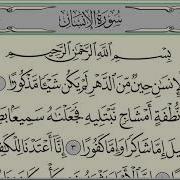 سُورَةُ الإِنسَانِ
بِسْمِ اللَّهِ الرَّحْمَٰنِ الرَّحِيمِ
الْإِنسَانِ حِينٌ مِّنَ الدَّهْرِ لَمْ يَكُن شَيْئًا مَّذْكُورًا ١
نُّطْفَةٍ أَمْشَاجٍ نَّبْتَلِيهِ فَجَعَلْنَاهُ سَمِيعًا بَصِيرًا
إِمَّا شَاكِرًا وَإِمَّا كَفُورًا ٣ إِنَّا أَعْتَدْنَا لِلْكَافِرِينَ